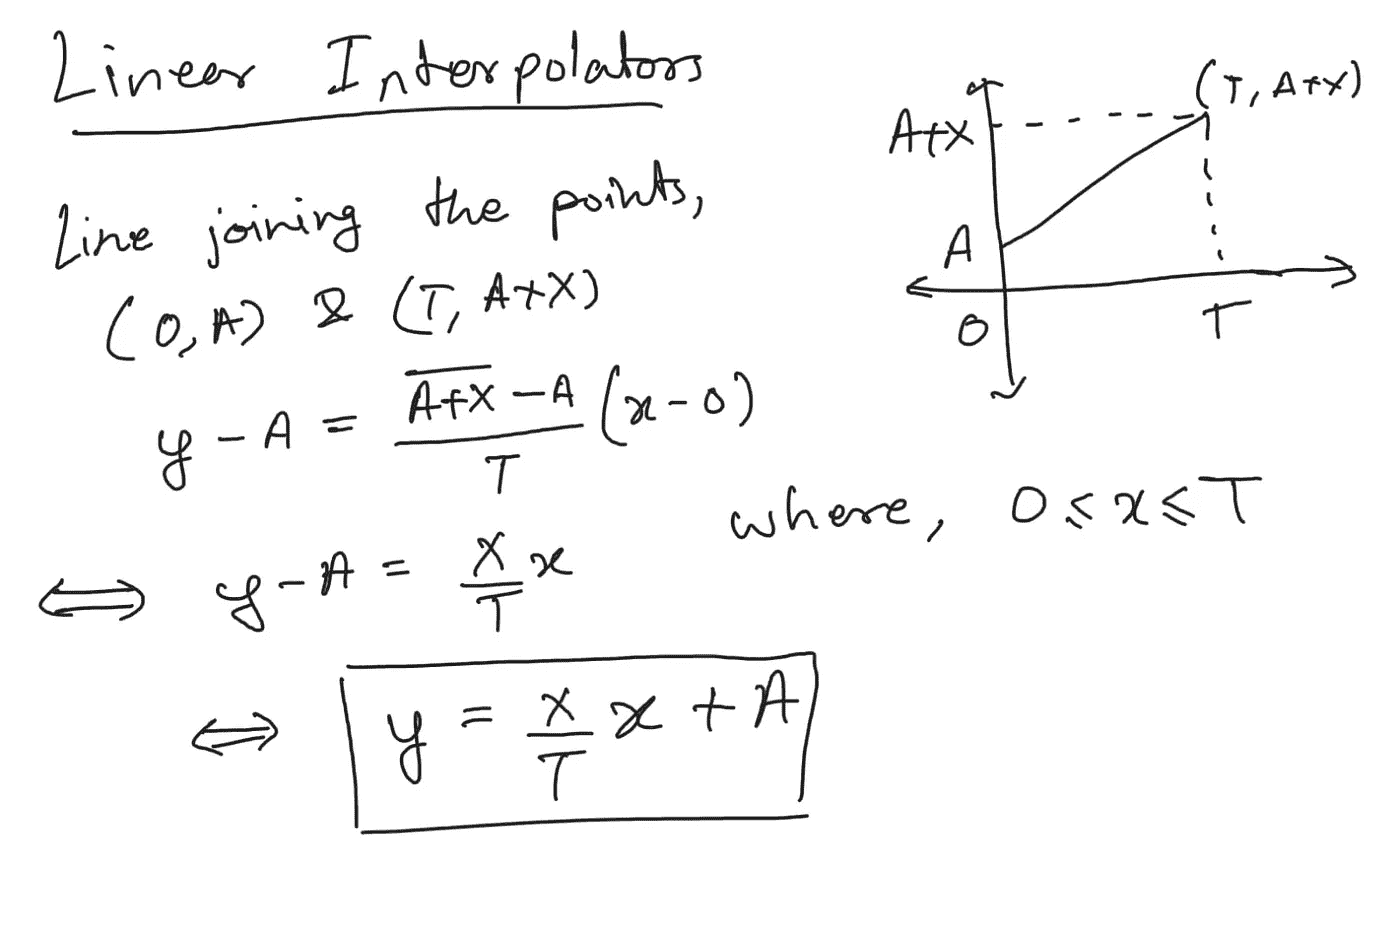 Linear Interpolators
Line joining the points,
(0, A) & (T, A+X)
y - A = (A+X - A)/T (x - 0)
where, 0 ≤ x ≤ T
⟺ y - A = X/T x
⟺ y = X/T x + A
(T, A+X)
A+X
A
O
T